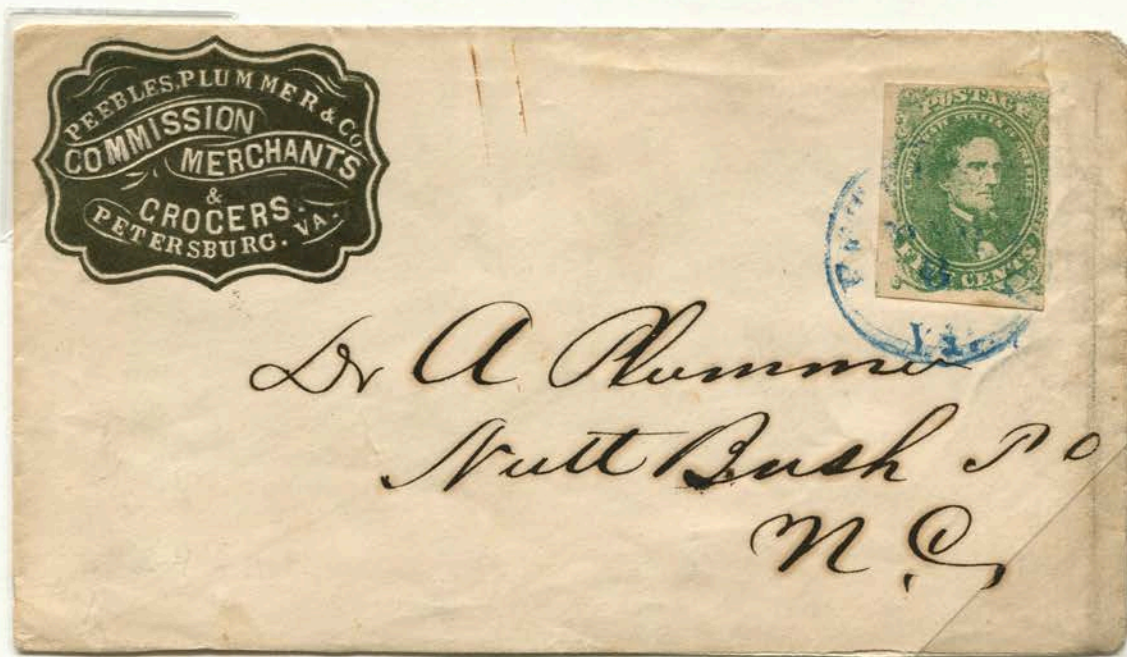 PEEBLES, PLUMMER & CO
COMMISSION
MERCHANTS
&
GROCERS.
PETERSBURG. VA.
POSTAGE
CONFEDERATE STATES OF AMERICA
FIVE CENTS
VA.
Dr A Plummer
Nutt Bush P O
N. C.